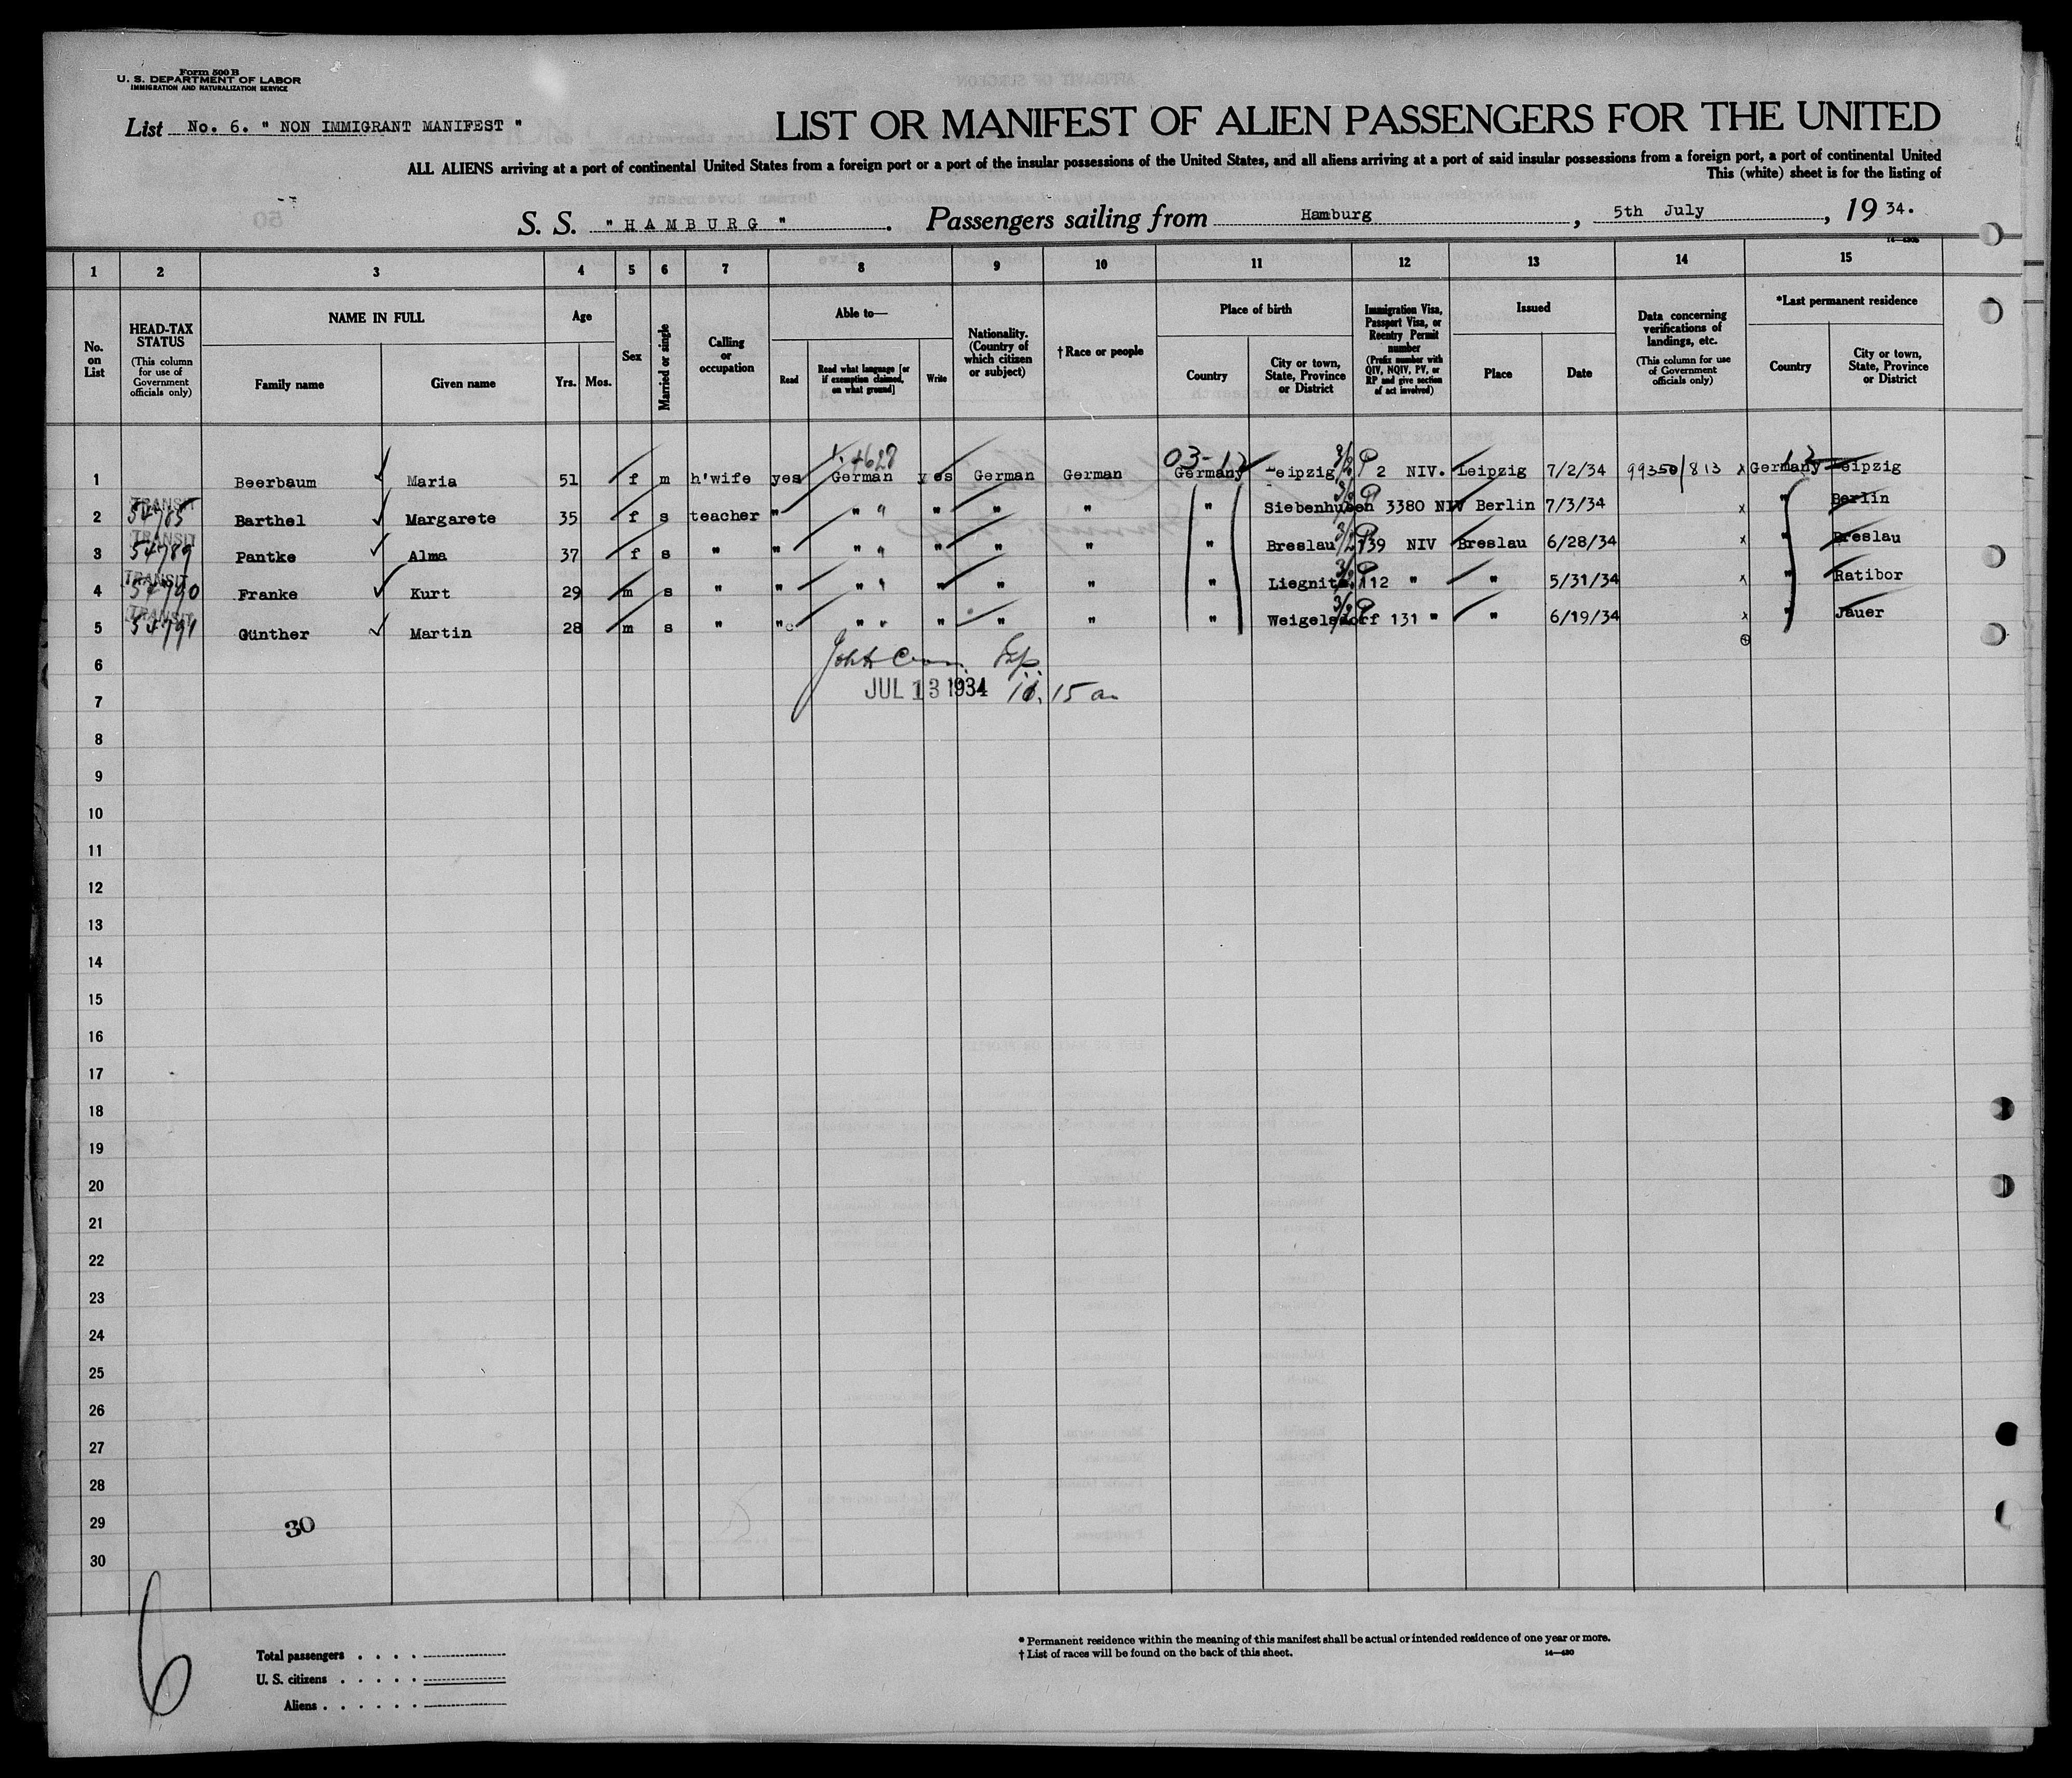 Form 500 B
U. S. DEPARTMENT OF LABOR
IMMIGRATION AND NATURALIZATION SERVICE
List No. 6. " NON IMMIGRANT MANIFEST "
LIST OR MANIFEST OF ALIEN PASSENGERS FOR THE UNITED
ALL ALIENS arriving at a port of continental United States from a foreign port or a port of the insular possessions of the United States, and all aliens arriving at a port of said insular possessions from a foreign port, a port of continental United
This (white) sheet is for the listing of
S. S. " H A M B U R G " . Passengers sailing from Hamburg , 5th July , 19 34.
1 2 3 4 5 6 7 8 9 10 11 12 13 14 15
No. on List
HEAD-TAX STATUS
(This column for use of Government officials only)
NAME IN FULL
Family name Given name
Age
Yrs. Mos.
Sex
Married or single
Calling or occupation
Able to—
Read Read what language [or if exemption claimed, on what ground] Write
Nationality. (Country of which citizen or subject)
† Race or people
Place of birth
Country City or town, State, Province or District
Immigration Visa, Passport Visa, or Reentry Permit number
(Prefix number with QIV, NQIV, PV, or RP and give section of act involved)
Issued
Place Date
Data concerning verifications of landings, etc.
(This column for use of Government officials only)
*Last permanent residence
Country City or town, State, Province or District
03-12
1 Beerbaum Maria 51 f m h'wife yes German yes German German Germany Leipzig P 2 NIV. Leipzig 7/2/34 99350/813 x Germany Leipzig
TRANSIT
2 54785 Barthel Margarete 35 f s teacher " " " " " " " Siebenhuben P 3380 NIV Berlin 7/3/34 x " Berlin
TRANSIT
3 54789 Pantke Alma 37 f s " " " " " " " " Breslau 139 NIV Breslau 6/28/34 x " Breslau
TRANSIT
4 54790 Franke Kurt 29 m s " " " " " " " " Liegnitz P 112 " " 5/31/34 x " Ratibor
TRANSIT
5 54791 Günther Martin 28 m s " " " " " " " " Weigelsdorf P 131 " " 6/19/34 x " Jauer
6
7 JUL 13 1934
8
9
10
11
12
13
14
15
16
17
18
19
20
21
22
23
24
25
26
27
28
29 30
30
6
Total passengers . . . .
U. S. citizens . . . . .
Aliens . . . . . .
* Permanent residence within the meaning of this manifest shall be actual or intended residence of one year or more.
† List of races will be found on the back of this sheet. 14—430